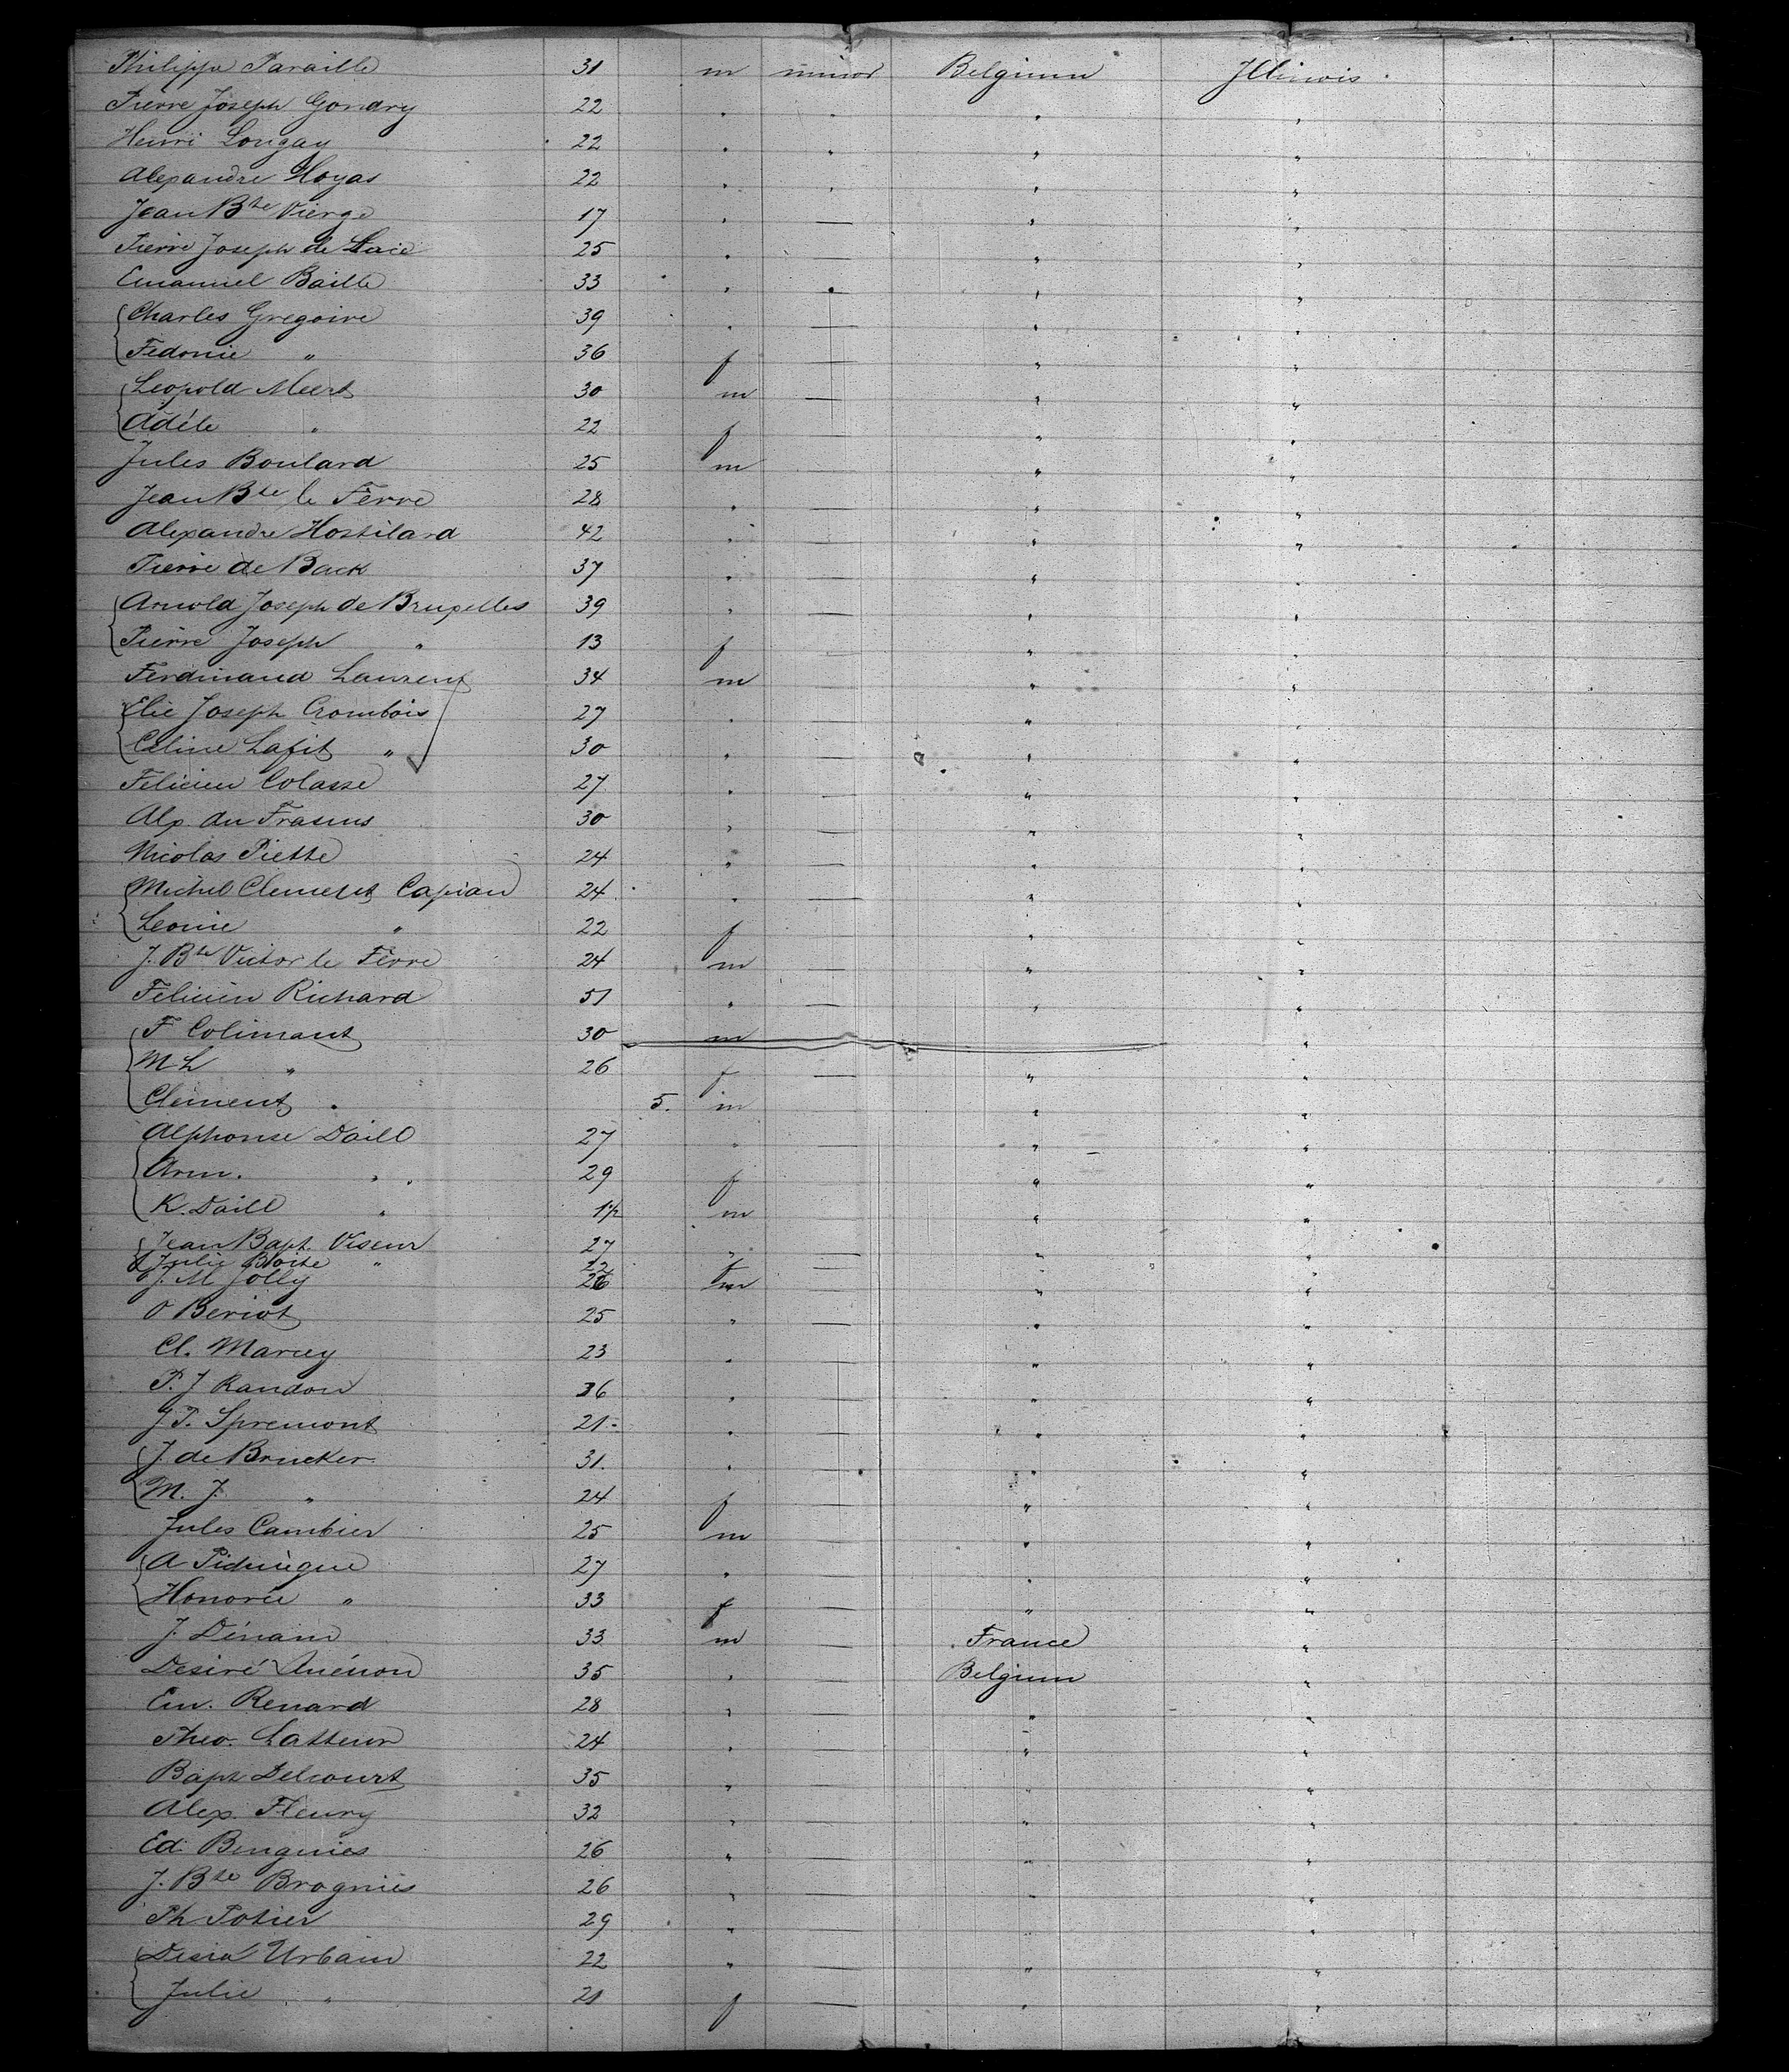 Philippe Paraille 31 m minor Belgium Illinois.
Pierre Joseph Gondry 22 " " " "
Henri Longay 22 " " " "
Alexandre Hoyas 22 " " " "
Jean Bte Vierge 17 " — " "
Pierre Joseph de 25 " — " "
Emanuel Baille 33 " " " "
Charles Gregoire 39 " — " "
Fedonie " 36 f — " "
Leopold Meert 30 m — " "
Adéle " 22 f — " "
Jules Boulard 25 m — " "
Jean Bte le Fèvre 28 " — " "
Alexandre Hostilard 42 " — " "
Pierre de Back 37 " — " "
Arnold Joseph de Bruxelles 39 " — " "
Pierre Joseph " 13 f — " "
Ferdinand Laurent 34 m — " "
Elie Joseph Crombois 27 " — " "
Celine Lafit " 30 " — " "
Felicien Colasse 27 " — " "
Alx. du Frasnus 30 " — " "
Nicolas Piette 24 " — " "
Michel Clement Capian 24 " — " "
Leonie " 22 f — " "
J. Bte Victor le Fèvre 24 m — " "
Felicien Richard 51 " — " "
F Colimant 30 m "
M L " 26 f — " "
Clement " 5. m " "
Alphonse Daill 27 " — " "
Arm. " 29 f — " "
K. Daill " 1½ m " "
Jean Bapt. Viseur 27 " — " "
Julie Boite " 22 f — " "
J. M Jolly 26 m " "
O Beriot 25 " — " "
Cl. Marcy 23 " — " "
P. J Randon 36 " — " "
J P. Spremont 21 " — " "
J. de Brucker 31. " — " "
M. J. " 24 f — " "
Jules Cambier 25 m — " "
A Pidunègue 27 " — " "
Honorée " 33 f — " "
J. Dénain 33 m — France "
Desiré 35 " — Belgium "
Em. Renard 28 " — " "
Theo. Latteur 24 " — " "
Bapt Delcourt 35 " — " "
Alex. Fleury 32 " — " "
Ed. Benguies 26 " — " "
J. Bte Brognies 26 " — " "
Ph Potier 29 " — " "
Urbain 22 " — " "
Julie " 21 f — " "